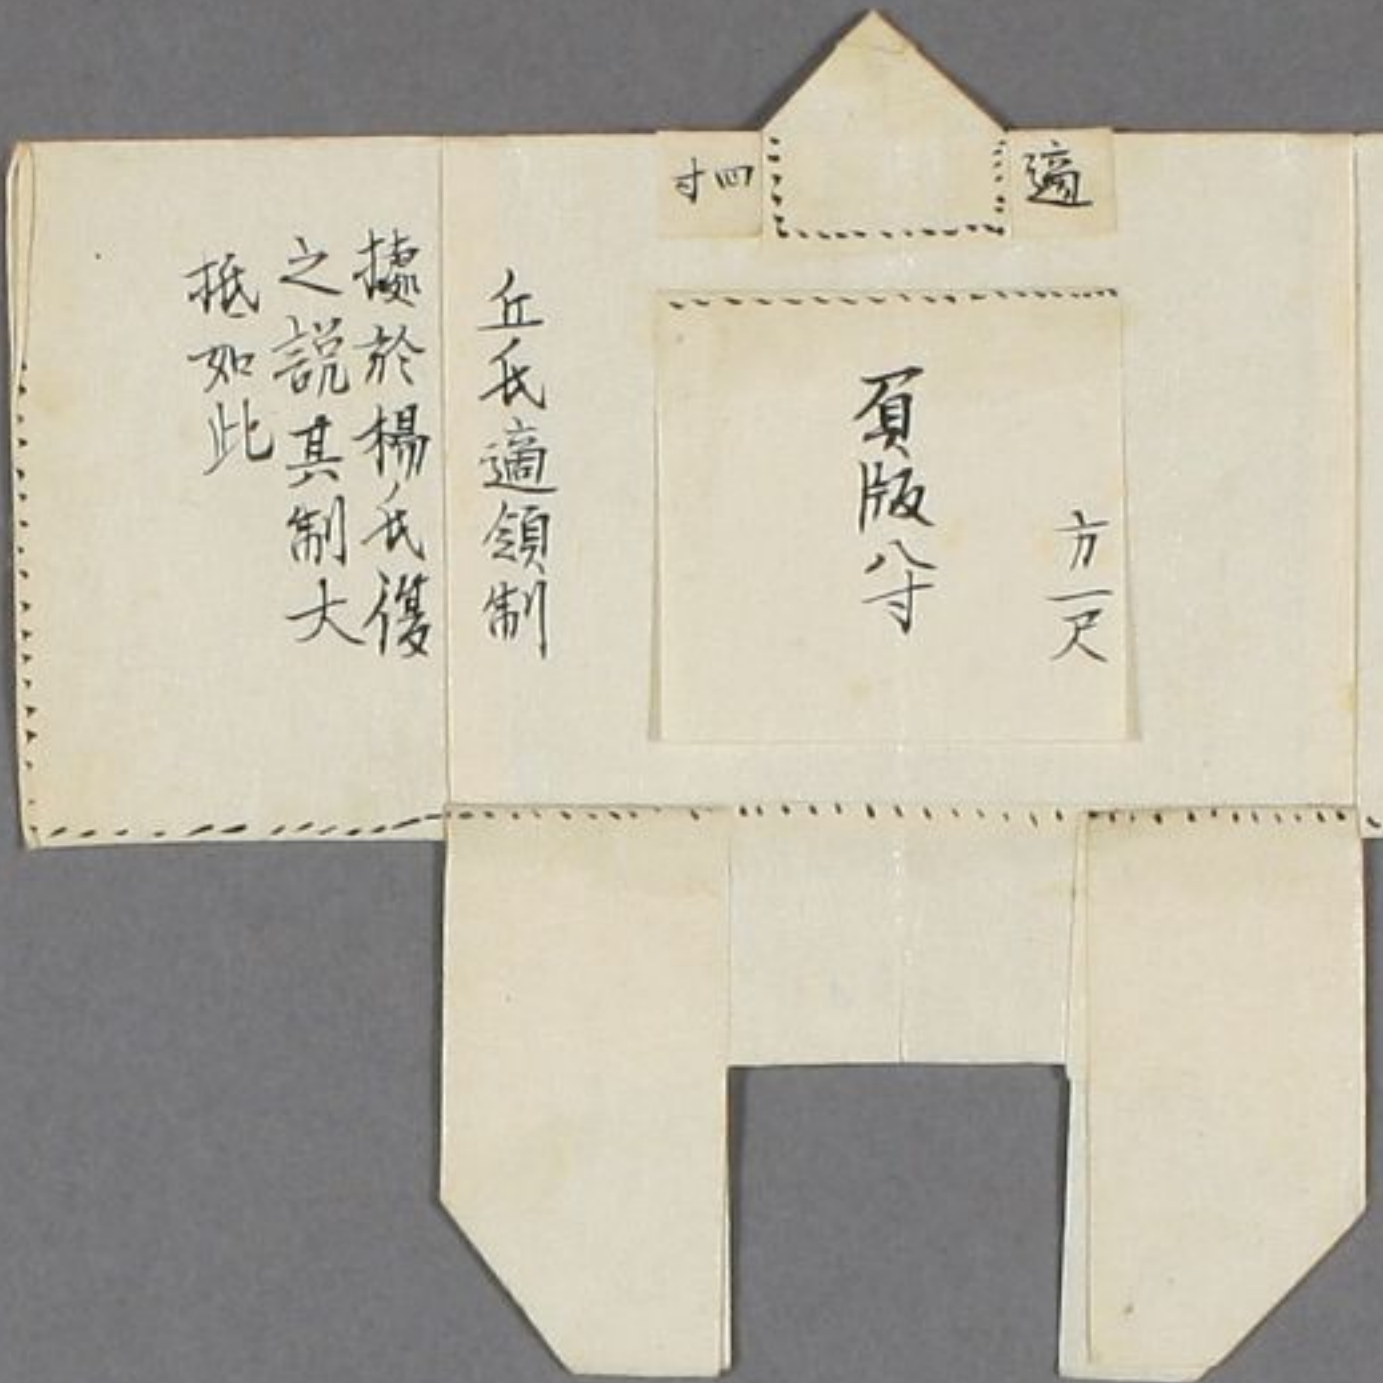 適
四寸
方一尺
負版八寸
丘氏適領制
據於楊氏復
之説其制大
抵如此